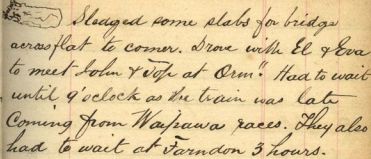 Sledged some slabs for bridge
across flat to corner. Drove with El & Eva
to meet John & Top at Orm". Had to wait
until 9 o'clock as the train was late
Coming from Waipawa races. They also
had to wait at Farndon 3 hours.